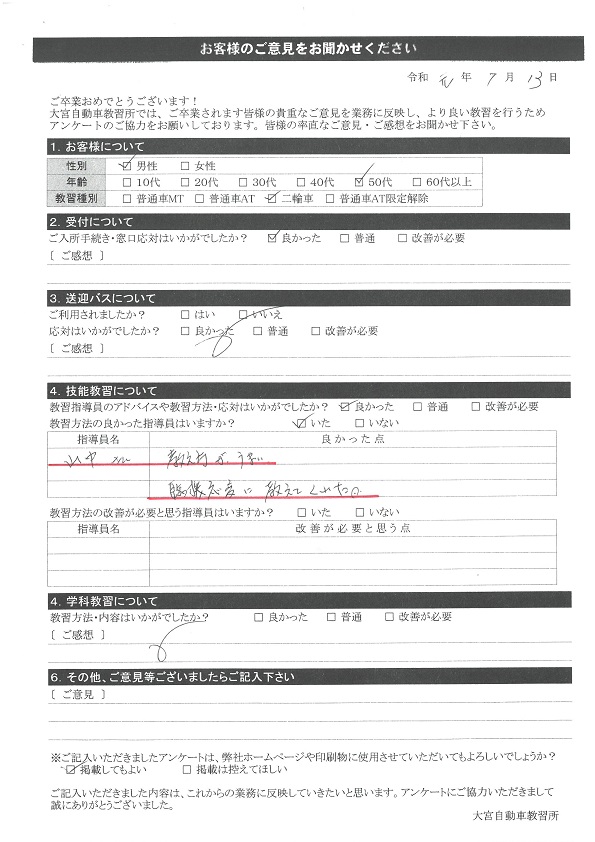 お客様のご意見をお聞かせください
令和 元 年 7 月 13 日
ご卒業おめでとうございます！
大宮自動車教習所では、ご卒業されます皆様の貴重なご意見を業務に反映し、より良い教習を行うため
アンケートのご協力をお願いしております。皆様の率直なご意見・ご感想をお聞かせ下さい。
1. お客様について
性別 ☑ 男性 □ 女性
年齢 □ 10代 □ 20代 □ 30代 □ 40代 ☑ 50代 □ 60代以上
教習種別 □ 普通車MT □ 普通車AT ☑ 二輪車 □ 普通車AT限定解除
2. 受付について
ご入所手続き・窓口応対はいかがでしたか？ ☑ 良かった □ 普通 □ 改善が必要
[ ご感想 ]
3. 送迎バスについて
ご利用されましたか？ □ はい □ いいえ
応対はいかがでしたか？ □ 良かった □ 普通 □ 改善が必要
[ ご感想 ]
4. 技能教習について
教習指導員のアドバイスや教習方法・応対はいかがでしたか？ ☑ 良かった □ 普通 □ 改善が必要
教習方法の良かった指導員はいますか？ ☑ いた □ いない
指導員名 良かった点
教え方が、うまい
臨機応変に 教えてくれた。
教習方法の改善が必要と思う指導員はいますか？ □ いた □ いない
指導員名 改善が必要と思う点
4. 学科教習について
教習方法・内容はいかがでしたか？ □ 良かった □ 普通 □ 改善が必要
[ ご感想 ]
6. その他、ご意見等ございましたらご記入下さい
[ ご意見 ]
※ご記入いただきましたアンケートは、弊社ホームページや印刷物に使用させていただいてもよろしいでしょうか？
☑ 掲載してもよい □ 掲載は控えてほしい
ご記入いただきました内容は、これからの業務に反映していきたいと思います。アンケートにご協力いただきまして
誠にありがとうございました。
大宮自動車教習所